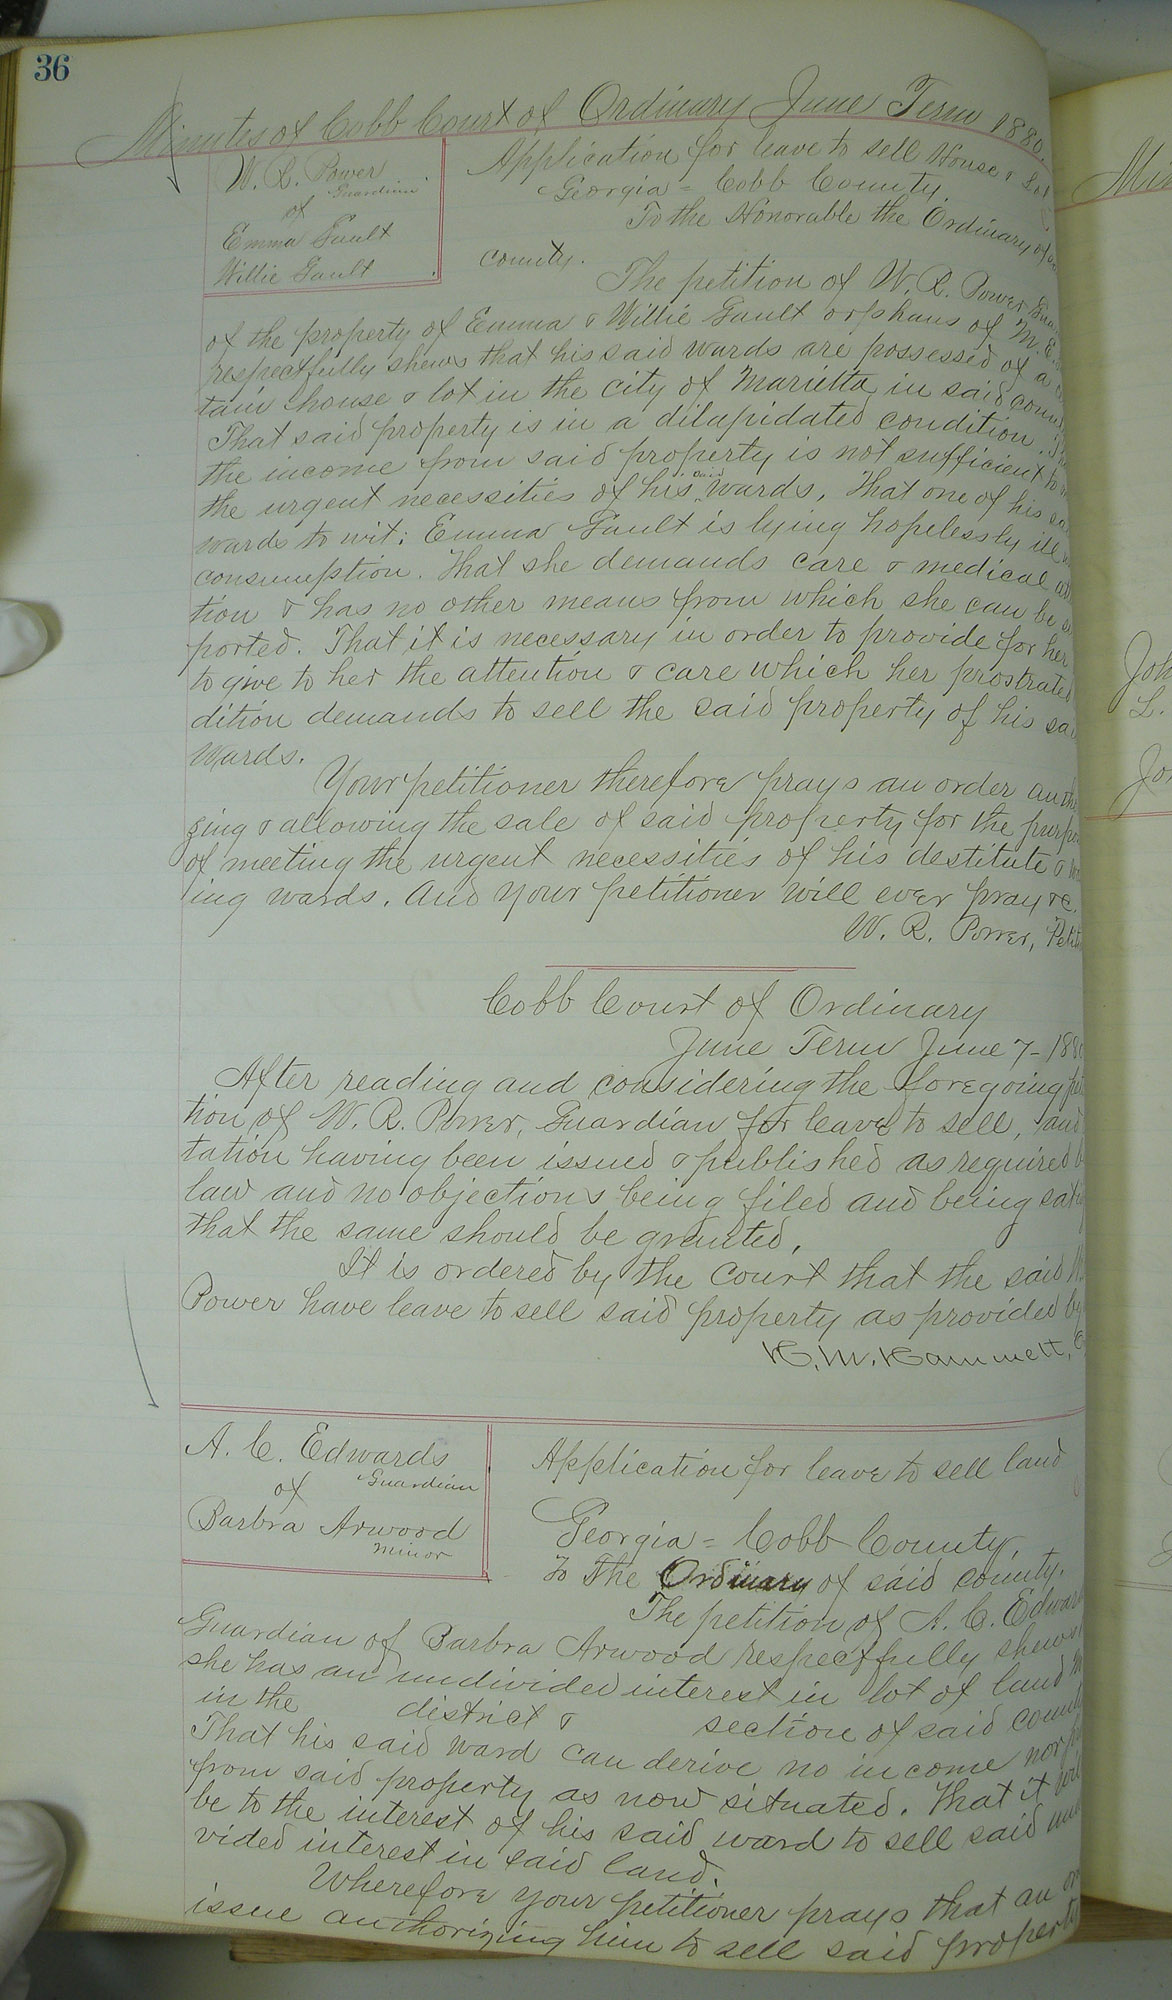 36
Minutes of Cobb Court of Ordinary June Term 1880.
W. R. Power
Guardian
of
Emma Gault
Willie Gault
Application for leave to sell House & Lot
Georgia = Cobb County
To the Honorable the Ordinary of
county.
The petition of W. R. Power
of the property of Emma & Willie Gault orphans of M. E.
respectfully shews that his said wards are possessed of a
tain house & lot in the city of Marietta in said
That said property is in a dilapidated condition.
the income from said property is not sufficient to
the urgent necessities of his said wards, That one of his
wards to wit: Emma Gault is lying hopelessly ill
consumption. That she demands care & medical
tion & has no other means from which she can be
ported. That it is necessary in order to provide for her
to give to her the attention & care which her prostrated
dition demands to sell the said property of his
wards.
Your petitioner therefore prays an order
zing & allowing the sale of said property for the
of meeting the urgent necessities of his destitute &
ing wards. And your petitioner will ever pray &c.
W. R. Power,
Cobb Court of Ordinary
June Term June 7- 188
After reading and considering the foregoing
tion of W. R. Power, Guardian for leave to sell, and
tation having been issued & published as required
law and no objections being filed and being
that the same should be granted,
It is ordered by the Court that the said
Power have leave to sell said property as provided by
H. M. Hammett,
A. C. Edwards
Guardian
of
Barbra Arwood
minor
Application for leave to sell land
Georgia = Cobb County,
To The Ordinary of said county.
The petition of A. C. Edward
Guardian of Barbra Arwood respectfully shews
she has an undivided interest in lot of land
in the district & section of said
That his said ward can derive no income nor
from said property as now situated. That it
be to the interest of his said ward to sell said
vided interest in said land.
Wherefore your petitioner prays that an
issue authorizing him to sell said property
Joh
L.